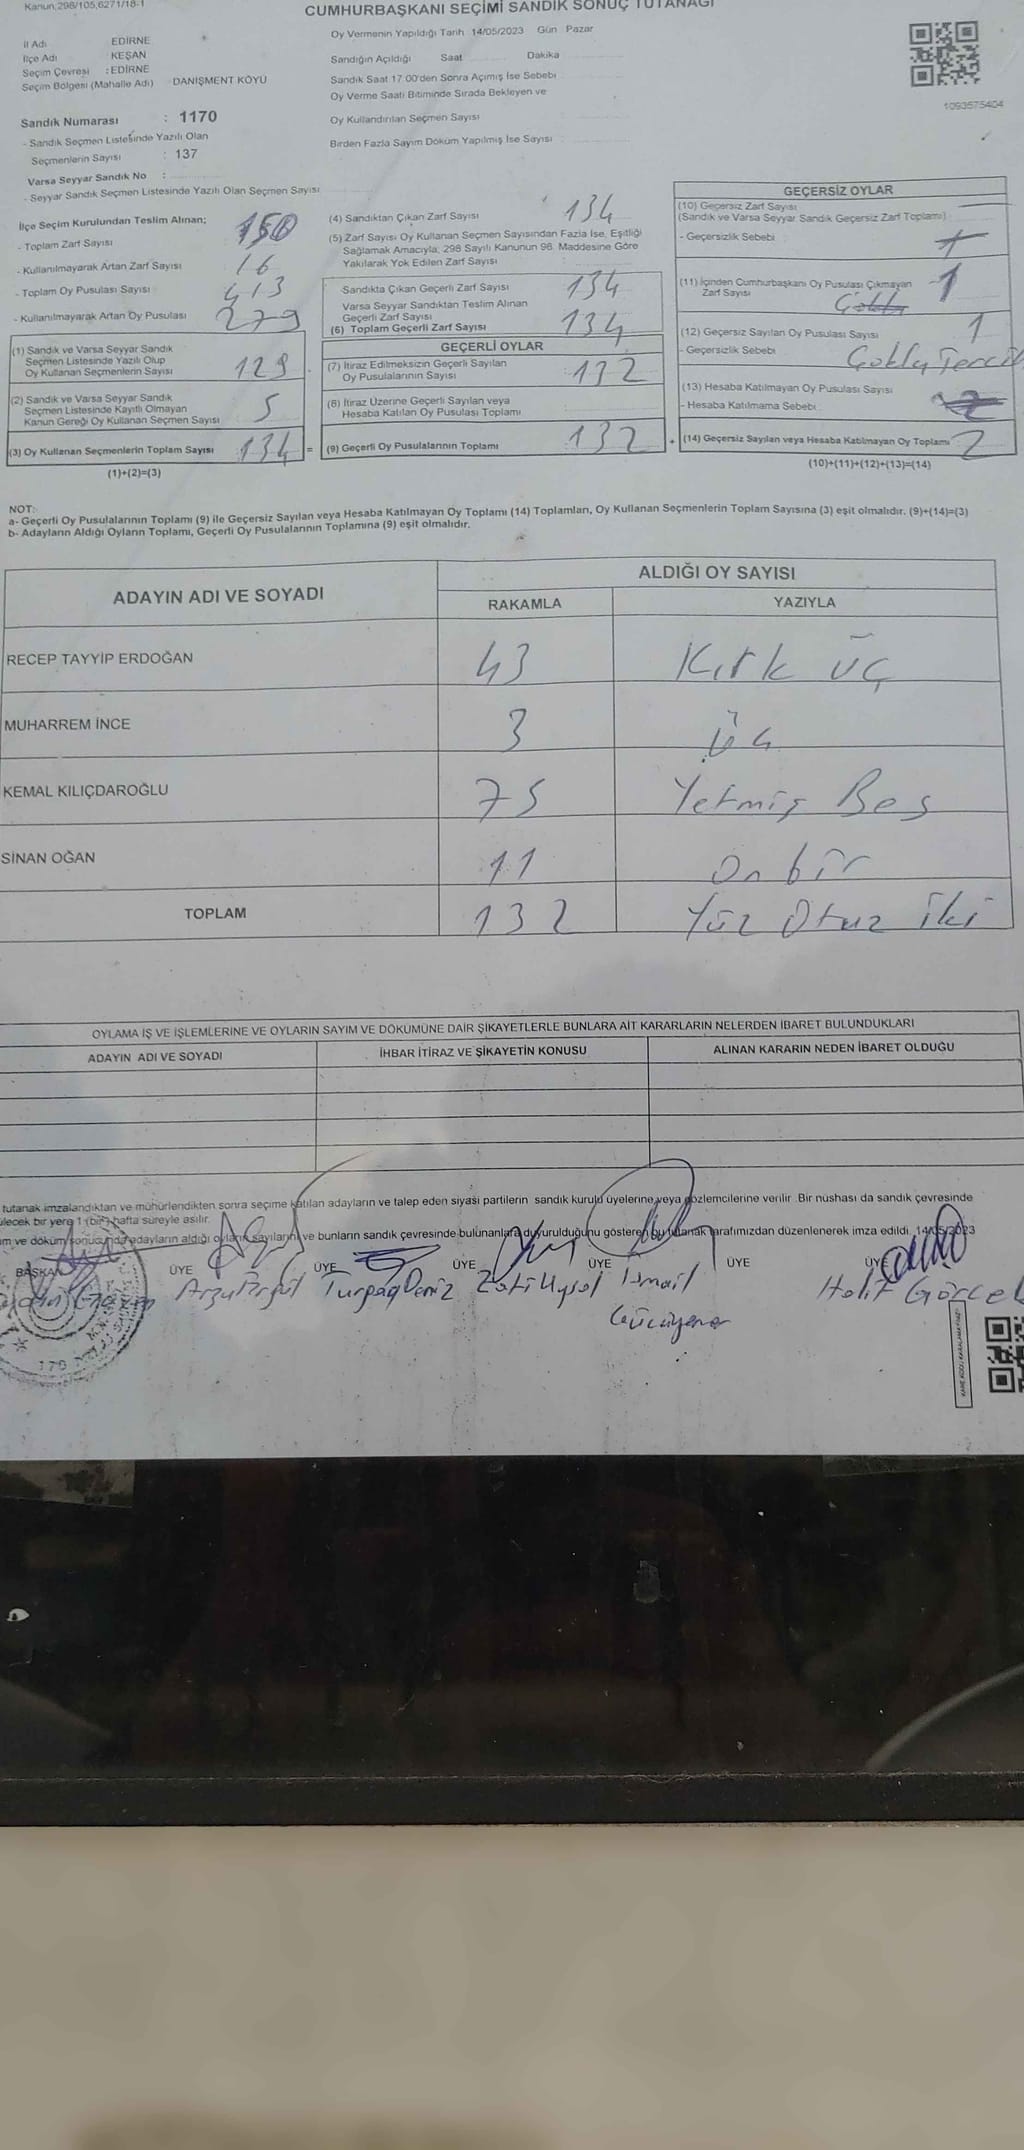 Kanun,298/105,6271/18-1
CUMHURBAŞKANI SEÇİMİ SANDIK SONUÇ TUTANAĞI
İl Adı EDİRNE
İlçe Adı KEŞAN
Seçim Çevresi : EDİRNE
Seçim Bölgesi (Mahalle Adı) DANIŞMENT KÖYÜ
Sandık Numarası : 1170
- Sandık Seçmen Listesinde Yazılı Olan
Seçmenlerin Sayısı : 137
Varsa Seyyar Sandık No :
- Seyyar Sandık Seçmen Listesinde Yazılı Olan Seçmen Sayısı
Oy Vermenin Yapıldığı Tarih 14/05/2023 Gün Pazar
Sandığın Açıldığı Saat Dakika
Sandık Saat 17:00'den Sonra Açımış İse Sebebi
Oy Verme Saati Bitiminde Sırada Bekleyen ve
Oy Kullandırılan Seçmen Sayısı
Birden Fazla Sayım Döküm Yapılmış İse Sayısı
1093575404
İlçe Seçim Kurulundan Teslim Alınan;
- Toplam Zarf Sayısı 150
- Kullanılmayarak Artan Zarf Sayısı 16
- Toplam Oy Pusulası Sayısı 413
- Kullanılmayarak Artan Oy Pusulası 279
(1) Sandık ve Varsa Seyyar Sandık
Seçmen Listesinde Yazılı Olup
Oy Kullanan Seçmenlerin Sayısı 129
(2) Sandık ve Varsa Seyyar Sandık
Seçmen Listesinde Kayıtlı Olmayan
Kanun Gereği Oy Kullanan Seçmen Sayısı 5
(3) Oy Kullanan Seçmenlerin Toplam Sayısı 134 =
(1)+(2)=(3)
(4) Sandıktan Çıkan Zarf Sayısı 134
(5) Zarf Sayısı Oy Kullanan Seçmen Sayısından Fazla İse, Eşitliği
Sağlamak Amacıyla, 298 Sayılı Kanunun 98. Maddesine Göre
Yakılarak Yok Edilen Zarf Sayısı
Sandıkta Çıkan Geçerli Zarf Sayısı 134
Varsa Seyyar Sandıktan Teslim Alınan
Geçerli Zarf Sayısı
(6) Toplam Geçerli Zarf Sayısı 134
GEÇERLİ OYLAR
(7) İtiraz Edilmeksizin Geçerli Sayılan
Oy Pusulalarının Sayısı 132
(8) İtiraz Üzerine Geçerli Sayılan veya
Hesaba Katılan Oy Pusulası Toplamı
(9) Geçerli Oy Pusulalarının Toplamı 132 +
GEÇERSİZ OYLAR
(10) Geçersiz Zarf Sayısı
(Sandık ve Varsa Seyyar Sandık Geçersiz Zarf Toplamı)
- Geçersizlik Sebebi
(11) İçinden Cumhurbaşkanı Oy Pusulası Çıkmayan
Zarf Sayısı 1
(12) Geçersiz Sayılan Oy Pusulası Sayısı 1
- Geçersizlik Sebebi Çoklu Tercih
(13) Hesaba Katılmayan Oy Pusulası Sayısı
- Hesaba Katılmama Sebebi
(14) Geçersiz Sayılan veya Hesaba Katılmayan Oy Toplamı 2
(10)+(11)+(12)+(13)=(14)
NOT:
a- Geçerli Oy Pusulalarının Toplamı (9) ile Geçersiz Sayılan veya Hesaba Katılmayan Oy Toplamı (14) Toplamları, Oy Kullanan Seçmenlerin Toplam Sayısına (3) eşit olmalıdır. (9)+(14)=(3)
b- Adayların Aldığı Oyların Toplamı, Geçerli Oy Pusulalarının Toplamına (9) eşit olmalıdır.
ADAYIN ADI VE SOYADI ALDIĞI OY SAYISI
RAKAMLA YAZIYLA
RECEP TAYYİP ERDOĞAN 43 Kırk üç
MUHARREM İNCE 3 üç
KEMAL KILIÇDAROĞLU 75 Yetmiş Beş
SİNAN OĞAN 11 On bir
TOPLAM 132 Yüz Otuz iki
OYLAMA İŞ VE İŞLEMLERİNE VE OYLARIN SAYIM VE DÖKÜMÜNE DAİR ŞİKAYETLERLE BUNLARA AİT KARARLARIN NELERDEN İBARET BULUNDUKLARI
ADAYIN ADI VE SOYADI İHBAR İTİRAZ VE ŞİKAYETİN KONUSU ALINAN KARARIN NEDEN İBARET OLDUĞU
tutanak imzalandıktan ve mühürlendikten sonra seçime katılan adayların ve talep eden siyasi partilerin sandık kurulu üyelerine veya gözlemcilerine verilir. Bir nüshası da sandık çevresinde
ilecek bir yere 1 (bir) hafta süreyle asılır.
ım ve döküm sonucunda adayların aldığı oyların sayılarını ve bunların sandık çevresinde bulunanlara duyurulduğunu gösteren bu tutanak tarafımızdan düzenlenerek imza edildi. 14/05/2023
BAŞKAN ÜYE ÜYE ÜYE ÜYE ÜYE ÜYE
Turpaq Deniz Zati Uysal İsmail Halit Görcel